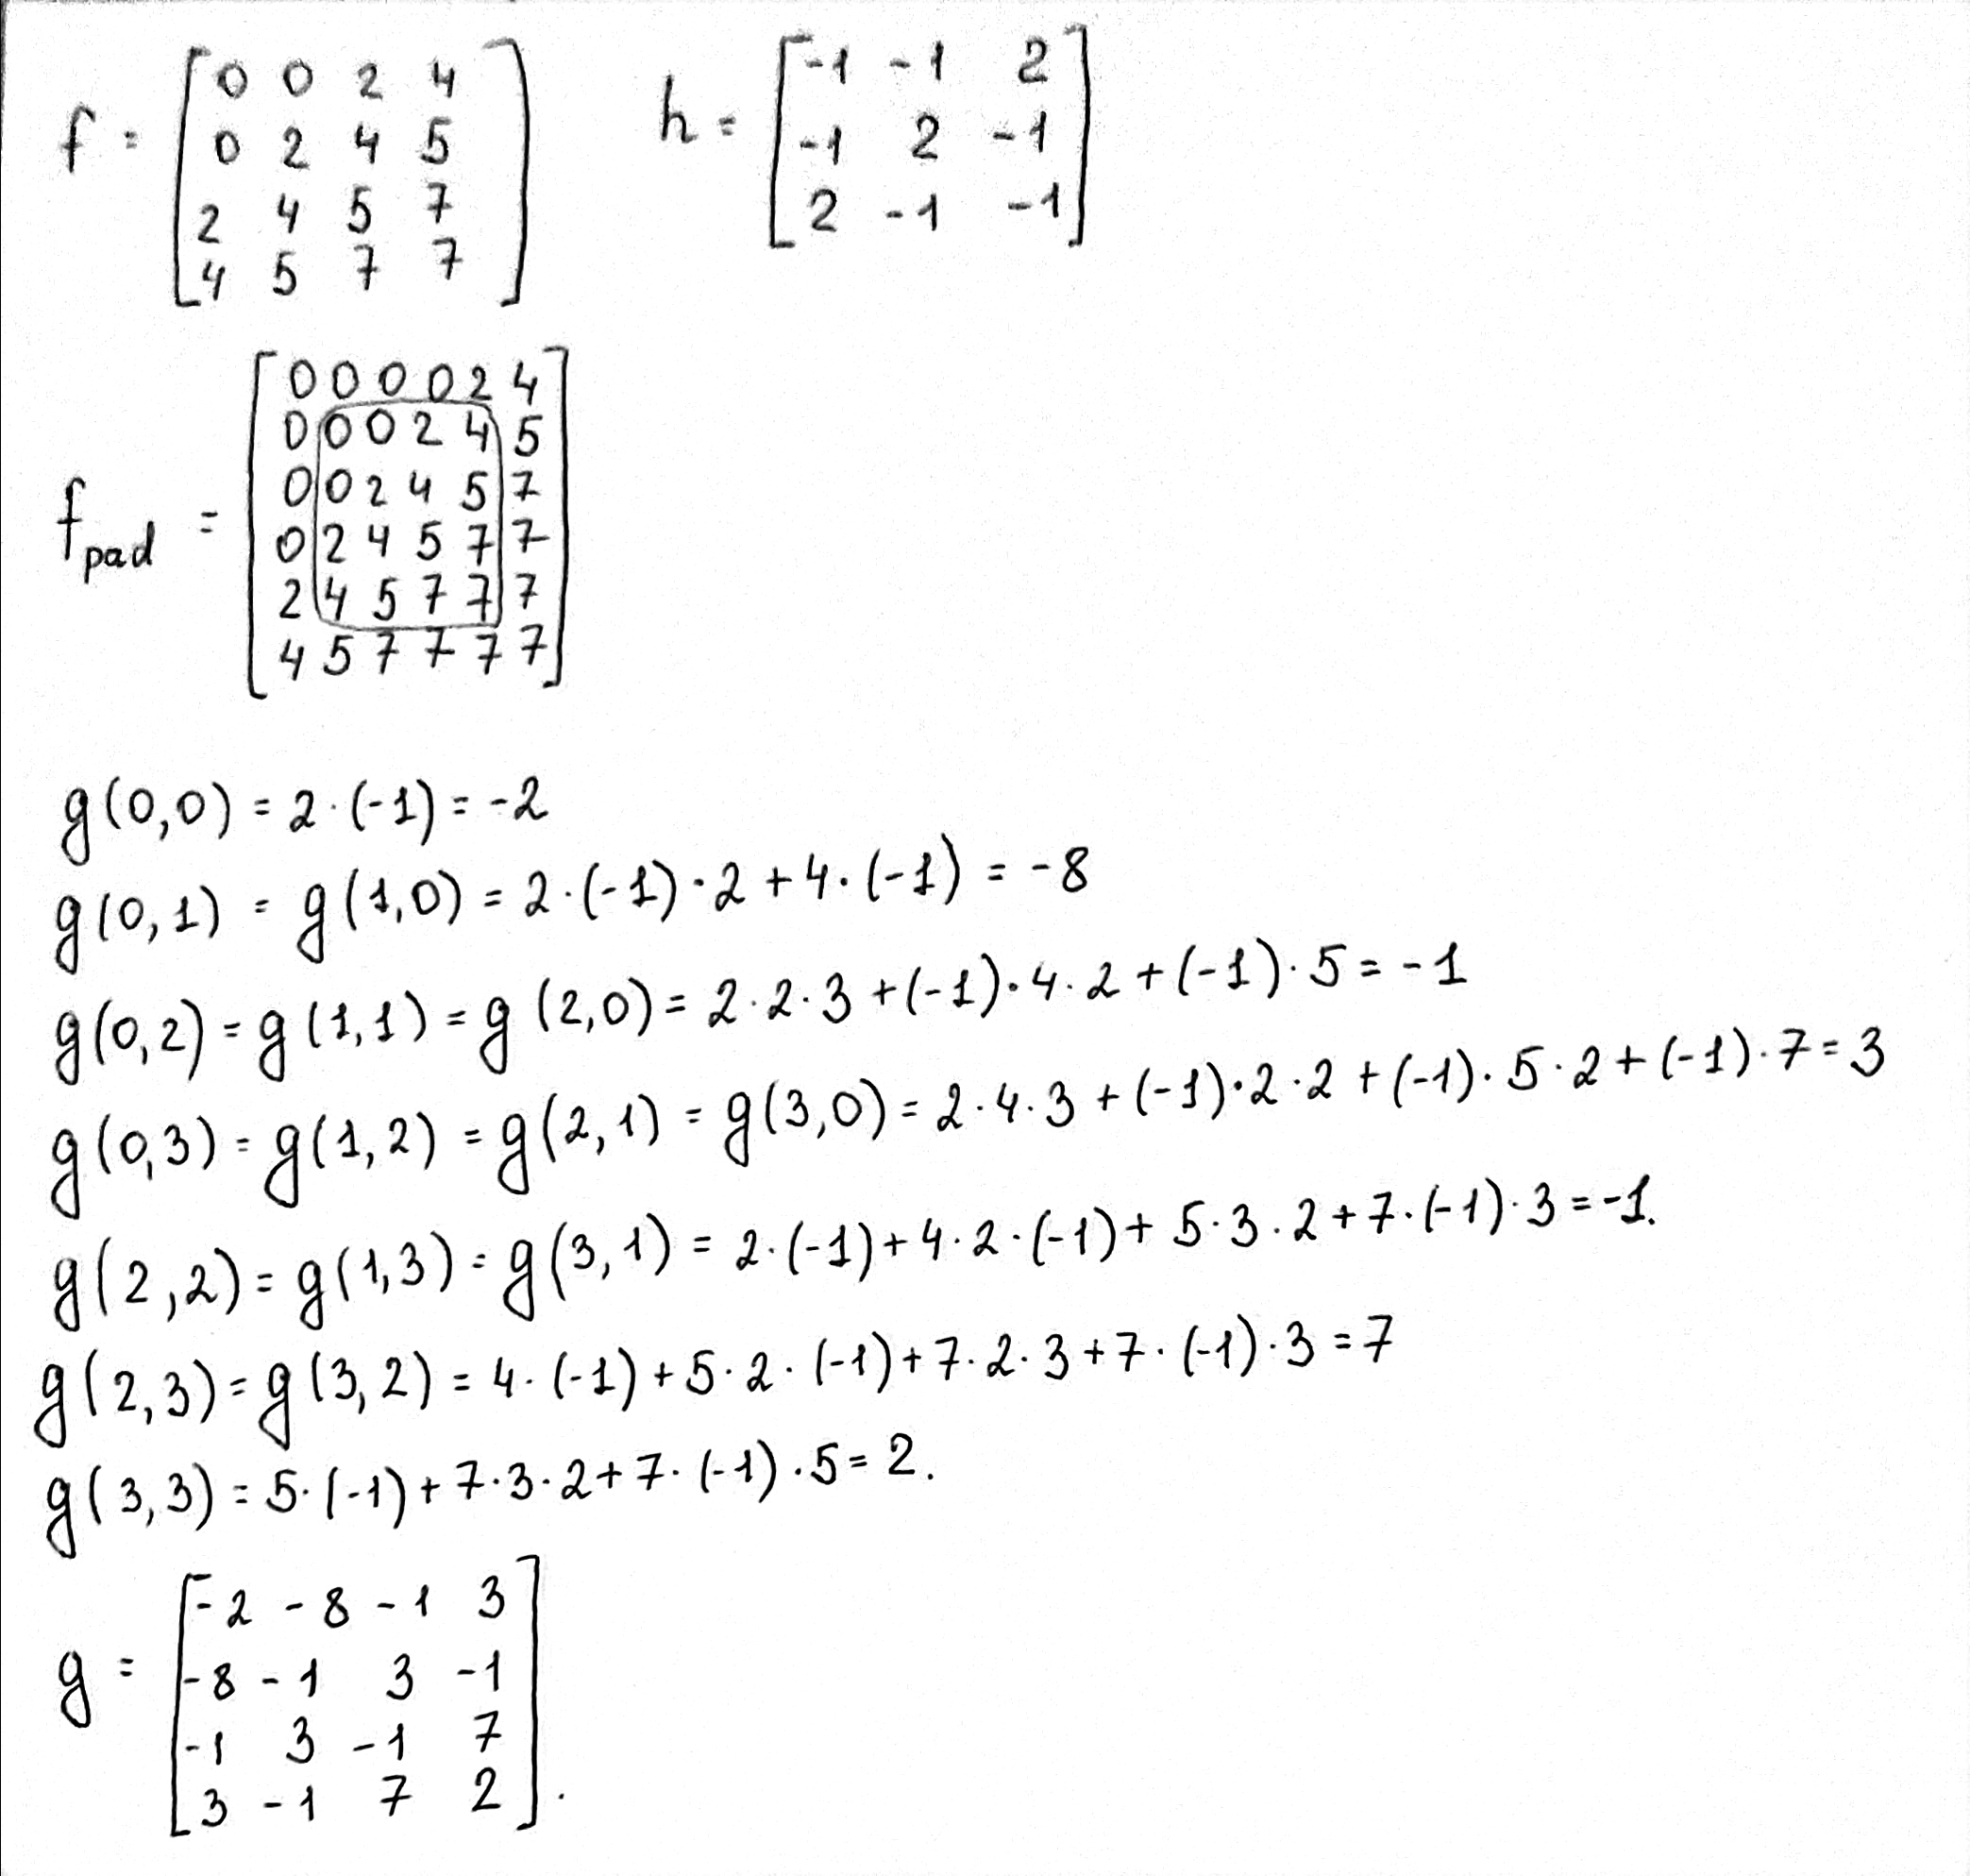 f = [0 0 2 4
0 2 4 5
2 4 5 7
4 5 7 7]
h = [-1 -1 2
-1 2 -1
2 -1 -1]
f_pad = [0 0 0 0 2 4
0 0 0 2 4 5
0 0 2 4 5 7
0 2 4 5 7 7
2 4 5 7 7 7
4 5 7 7 7 7]
g(0,0) = 2·(-1) = -2
g(0,1) = g(1,0) = 2·(-1)·2+4·(-1) = -8
g(0,2) = g(1,1) = g(2,0) = 2·2·3+(-1)·4·2+(-1)·5 = -1
g(0,3) = g(1,2) = g(2,1) = g(3,0) = 2·4·3+(-1)·2·2+(-1)·5·2+(-1)·7 = 3
g(2,2) = g(1,3) = g(3,1) = 2·(-1)+4·2·(-1)+5·3·2+7·(-1)·3 = -1.
g(2,3) = g(3,2) = 4·(-1)+5·2·(-1)+7·2·3+7·(-1)·3 = 7
g(3,3) = 5·(-1)+7·3·2+7·(-1)·5 = 2.
g = [-2 -8 -1 3
-8 -1 3 -1
-1 3 -1 7
3 -1 7 2].